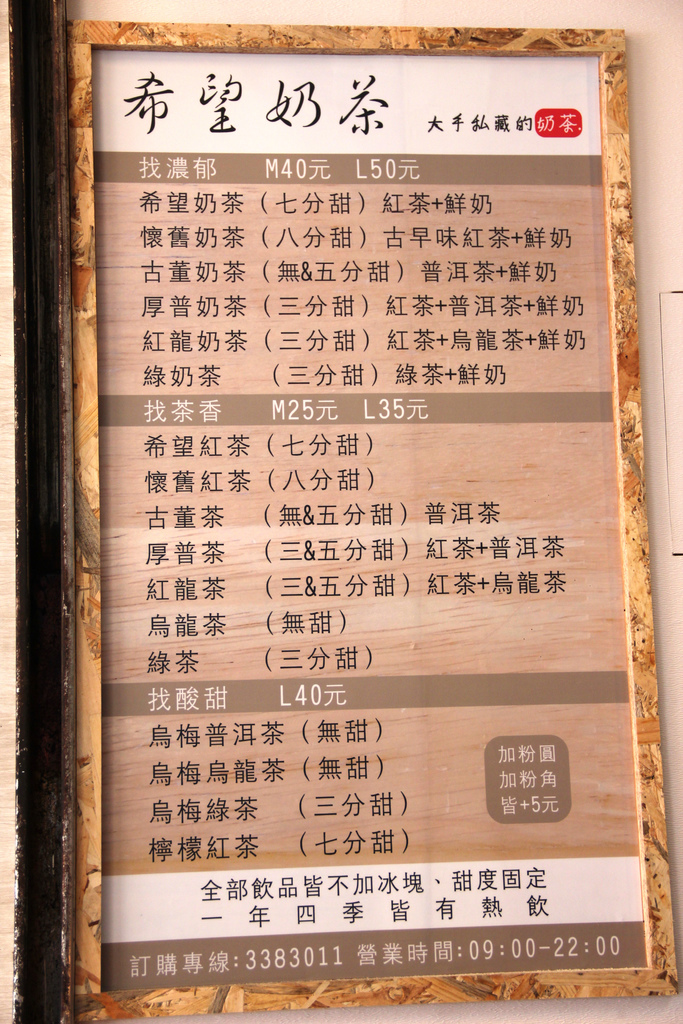 希望奶茶 大手私藏的奶茶.
找濃郁 M40元 L50元
希望奶茶(七分甜)紅茶+鮮奶
懷舊奶茶(八分甜)古早味紅茶+鮮奶
古董奶茶(無&五分甜)普洱茶+鮮奶
厚普奶茶(三分甜)紅茶+普洱茶+鮮奶
紅龍奶茶(三分甜)紅茶+烏龍茶+鮮奶
綠奶茶 (三分甜)綠茶+鮮奶
找茶香 M25元 L35元
希望紅茶(七分甜)
懷舊紅茶(八分甜)
古董茶 (無&五分甜)普洱茶
厚普茶 (三&五分甜)紅茶+普洱茶
紅龍茶 (三&五分甜)紅茶+烏龍茶
烏龍茶 (無甜)
綠茶 (三分甜)
找酸甜 L40元
烏梅普洱茶(無甜)
烏梅烏龍茶(無甜)
烏梅綠茶 (三分甜)
檸檬紅茶 (七分甜)
加粉圓
加粉角
皆+5元
全部飲品皆不加冰塊、甜度固定
一年四季皆有熱飲
訂購專線:3383011 營業時間:09:00-22:00